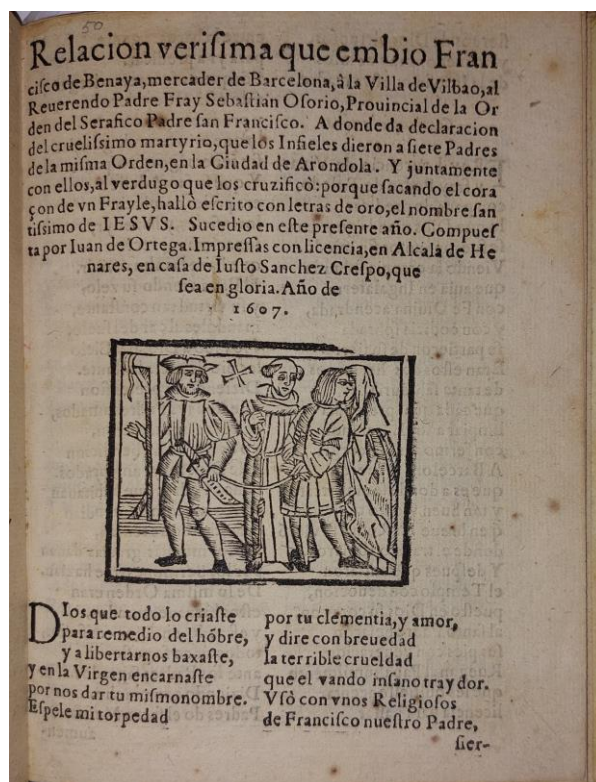 50
Relacion verisima que embio Fran
cisco de Benaya, mercader de Barcelona, à la Villa de Vilbao, al
Reuerendo Padre Fray Sebastian Osorio, Prouincial de la Or
den del Serafico Padre san Francisco. A donde da declaracion
del cruelissimo martyrio, que los Infieles dieron a siete Padres
de la misma Orden, en la Ciudad de Arondola. Y juntamente
con ellos, al verdugo que los cruzificò: porque sacando el cora
çon de vn Frayle, hallò escrito con letras de oro, el nombre san
tissimo de IESVS. Sucedio en este presente año. Compues
ta por Iuan de Ortega. Impressas con licencia, en Alcala de He
nares, en casa de Iusto Sanchez Crespo, que
sea en gloria. Año de
1607.
Dios que todo lo criaste
para remedio del hõbre,
y a libertarnos baxaste,
y en la Virgen encarnaste
por nos dar tu mismo nombre.
Espele mi torpedad
por tu clemencia, y amor,
y dire con breuedad
la terrible crueldad
que el vando insano traydor.
Vsò con vnos Religiosos
de Francisco nuestro Padre,
sier-